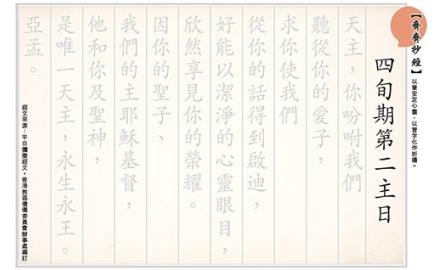 【齊齊抄經】
以筆安定心靈,以習字化作祈禱。
四旬期第二主日
天主,你吩咐我們
聽從你的愛子,
求你使我們
從你的話得到啟迪,
好能以潔淨的心靈眼目,
欣然享見你的榮耀。
因你的聖子、
我們的主耶穌基督,
他和你及聖神,
是唯一天主,永生永王。
亞孟。
經文來源:平日彌撒經文,香港教區禮儀委員會辦事處編訂